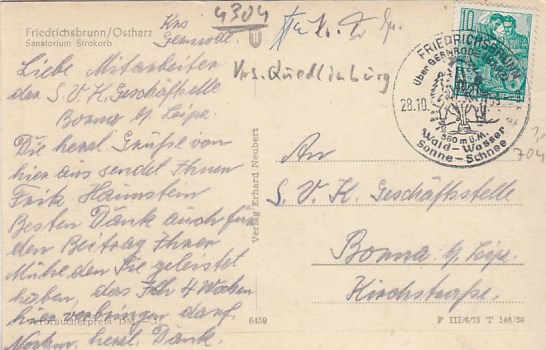 Friedrichsbrunn/Ostharz
Sanatorium Strokorb
Krs
Gernrode
4304
Krs. Quedlinburg
Liebe Mitarbeiter
der S.V.K. Geschäftselle
Borna b/ Leipz.
Die herzl. Grüße von
hier aus sendet Ihnen
Fritz
Besten Dank auch für
den Beitrag Ihrer
Mühe den Sie geleistet
haben, das Ich 4 Wochen
hier verbringen darf.
herzl. Dank.
Verbraucherpreis
6439
Verlag Erhard Neubert
An
S. V. K. Geschäftstelle
Borna b/ Leipz.
Kirchstraße.
F III/6/73 T 146/58
10
FRIEDRICHSBRUNN
über GERNRODE
28.10.
580 m ü.M.
Wald-Wasser
Sonne-Schnee